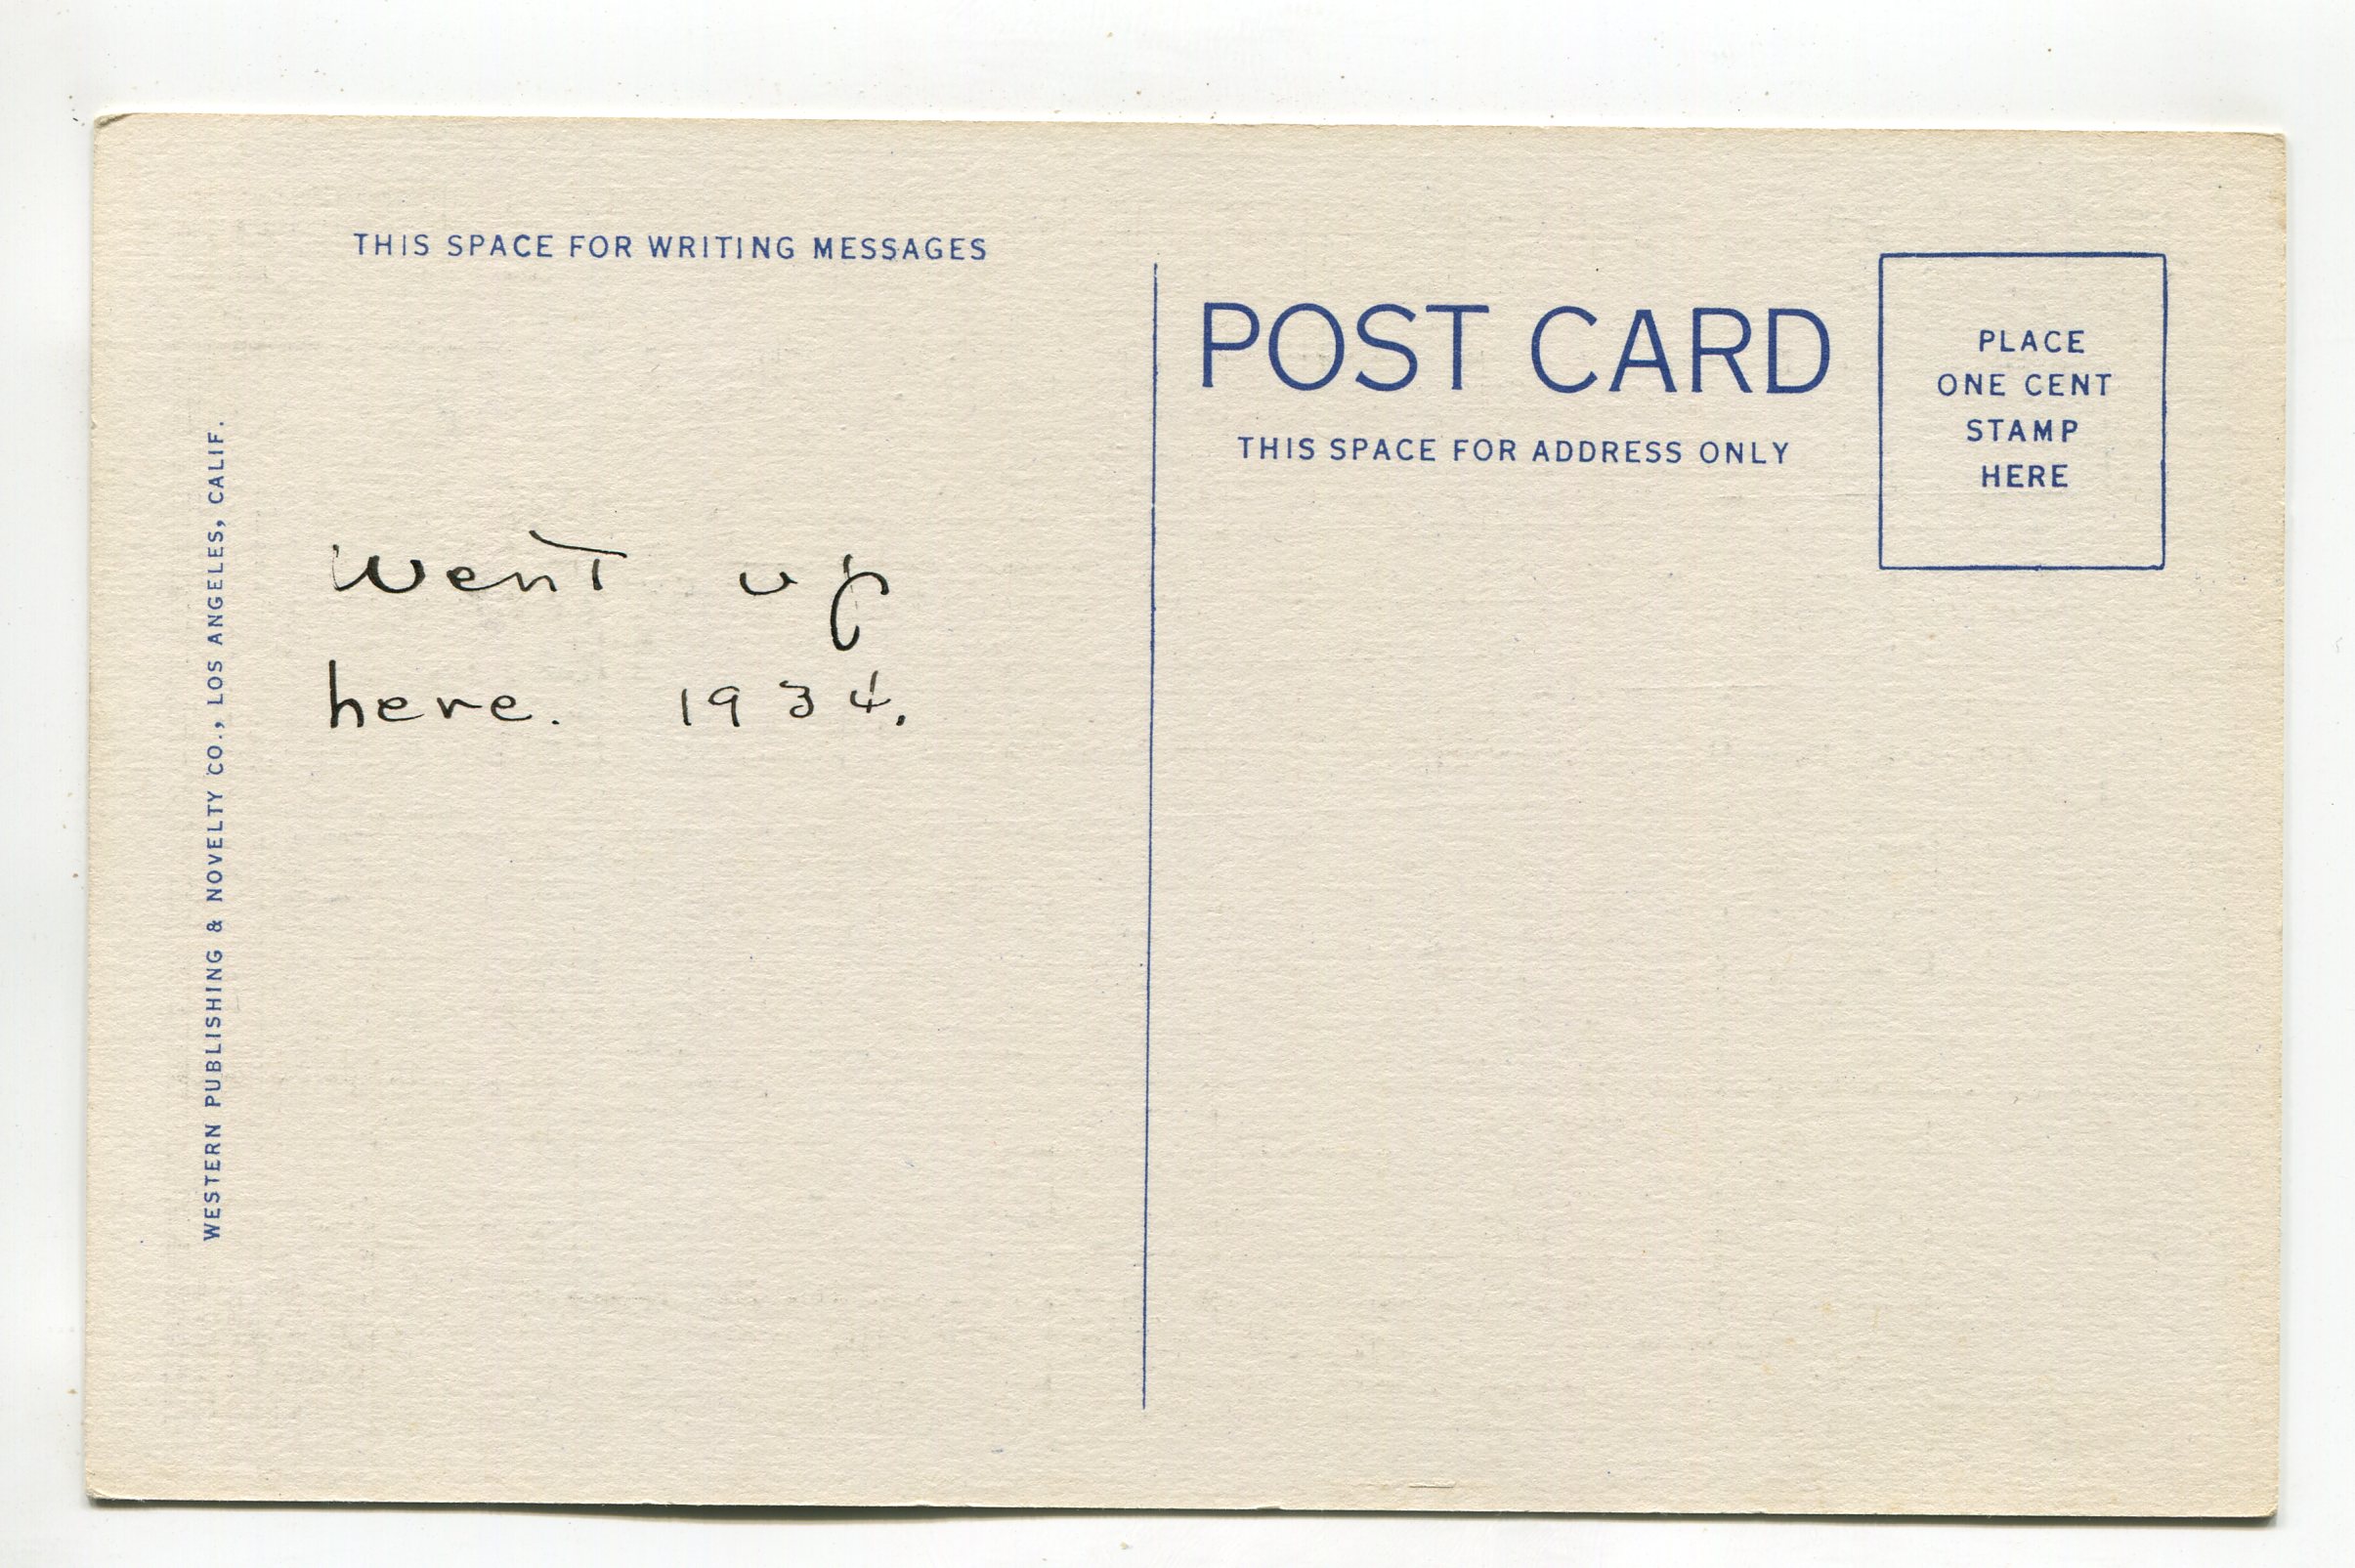 THIS SPACE FOR WRITING MESSAGES
Went up
here. 1934.
WESTERN PUBLISHING & NOVELTY CO., LOS ANGELES, CALIF.
POST CARD
THIS SPACE FOR ADDRESS ONLY
PLACE
ONE CENT
STAMP
HERE